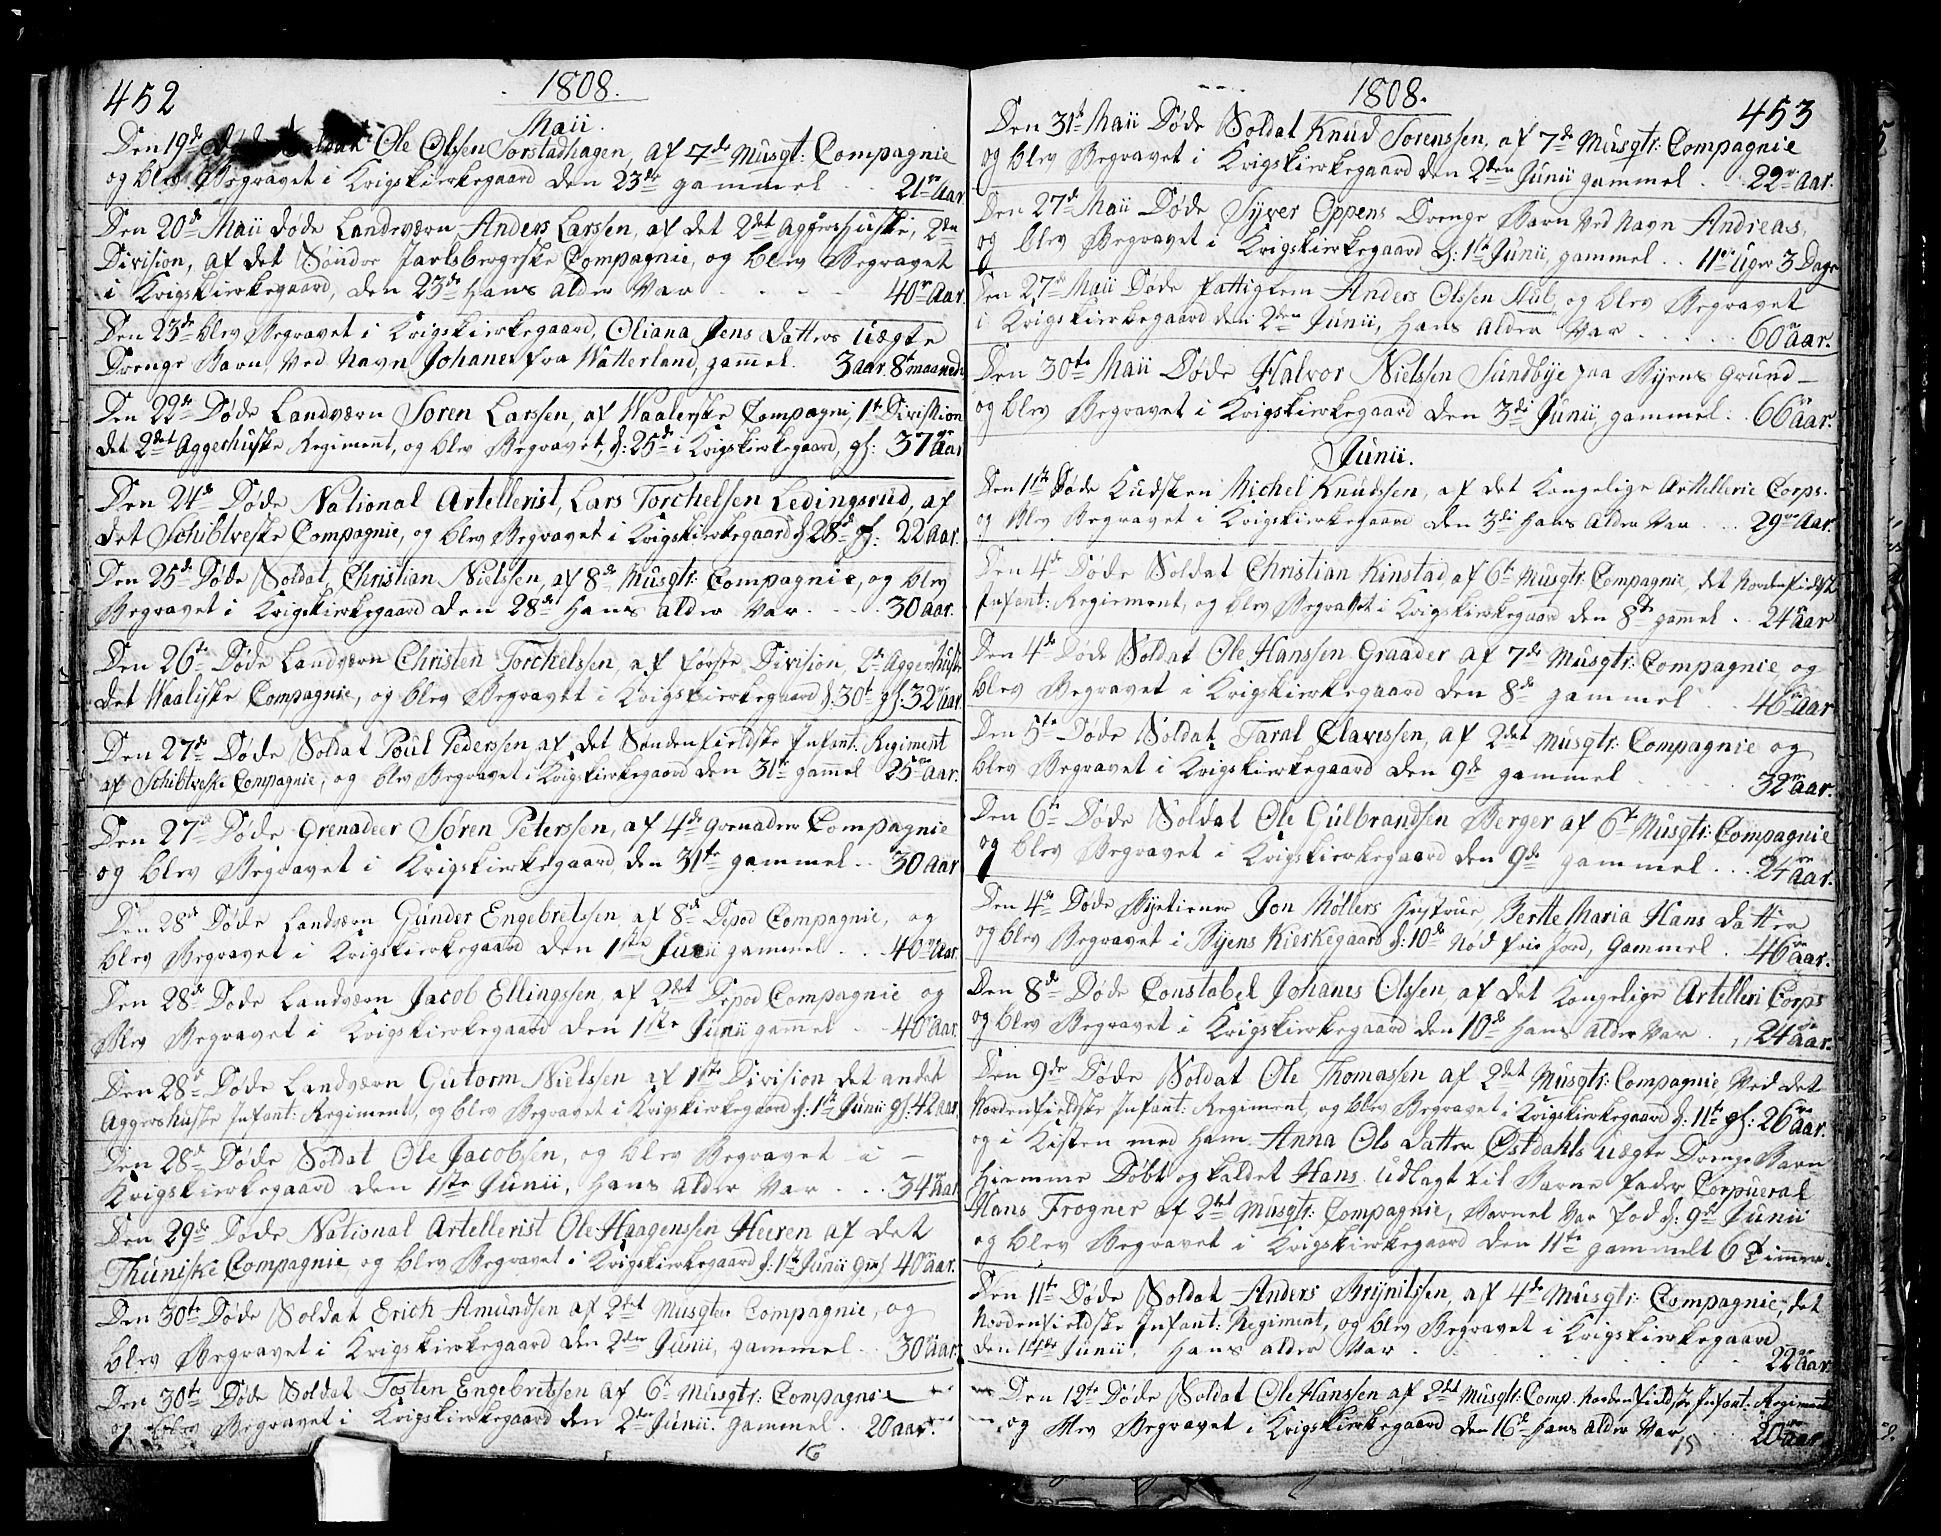 452
1808.
Maii.
Den 19de Døde Soldat Ole Olssen Torstadhagen, af 7de Musqt: Compagnie
og blev Begravet i Krigskirkegaard den 23de gammel . . 21 Aar
Den 20de Maii Døde Landværn Anders Larssen, af det 2det Aggershuske, 2den
Division, af det Søndre Jarlsbergske Compagnie, og blev Begravet
i Krigskirkegaard, den 23de Hans alder var . . . . 40 Aar
Den 23de blev Begravet i Krigskirkegaard, Oliana Jens datters uægte
Drenge Barn, ved Navn Johanes fra Watterland, gammel. 3 aar 8te maaneder
Den 22de Døde Landværn Soren Larssen, af Waalerske Compagni, 1te Divistion
det 2det Aggerhuske Regiment, og blev Begravet, d: 25de i Krigskirkegaard, gl: 37 Aar
Den 24de Døde National Artellerist, Lars Torchelsen Ledingsrud, af
det Schibtveske Compagnie, og blev Begravet i Krigskirkegaard d 28de gl: 22 Aar.
Den 25de Døde Soldat, Christian Nielssen, af 8de Musqtr: Compagnie, og blev
Begravet i Krigskirkegaard den 28de Hans alder var . . . . 30 aar.
Den 26te Døde Landværn Christen Torchelssen, af første Division, 2de Aggershuske
det Waalerske Compagnie, og blev Begravet i Krigskirkegaard d: 30te gl: 32 Aar
Den 27de Døde Soldat Poul Pederssen af det Søndenfieldske Infant: Regiment
af Schibtveske Compagnie, og blev Begravet i Krigskirkegaard den 31te gammel 25 Aar.
Den 27de Døde Grenadeer Søren Peterssen, af 4de Grenadeer Compagnie
og blev Begravet i Krigskirkegaard, den 31te gammel . . 30 Aar
Den 28de Døde Landværn Gunder Engebretssen af 8de Depod Compagnie, og
blev Begravet i Krigskirkegaard den 1ste Junii gammel . . . 40 Aar.
Den 28de Døde Landværn Jacob Ellingssen, af 2det Depod Compagnie og
Blev Begravet i Krigskirkegaard den 1ste Junii gammel . . 40 Aar.
Den 28de Døde Landværn Gutorm Nielssen af 1ste Division det andet
Aggershuske Infant: Regiment, og blev Begravet i Krigskirkegaard d: 1ste Junii gl: 42 aar
Den 28de Døde Soldat Ole Jacobsen, og blev Begravet i –
Krigskirkegaard den 1ste Junii, Hans alder var . . . 34 Aar
Den 29de Døde National Artellerist Ole Haagenssen Heeren af det
Thuniske Compagnie og blev Begravet i Krigskirkegaard d: 1ste Junii gml 40 aar.
Den 30te Døde Soldat Erich Amundsen af 2det Musqter Compagnie, og
blev Begravet i Krigskirkegaard den 2den Junii, gammel . . 30 Aar.
Den 30te Døde Soldat Tosten Engebretssen af 6te Musqtr: Compagnie
og blev Begravet i Krigskirkegaard den 2den Junii. gammel. 20 aar.
16
1808.
453
Den 31te Maii Døde Soldat Knud Sorenssen, af 7de Musqtr: Compagnie
og blev Begravet i Krigskirkegaard den 2den Junii gammel . . 22 Aar.
Den 27de Maii Døde Syver Oppens Drenge Barn ved Navn Andreas,
og blev Begravet i Krigskirkegaard d: 1ste Junii, gammel . . 11 Uger 3 Dage
Den 27de Maii Døde Fattiglem Anders Olssen Aul, og blev Begravet
i Krigskirkegaard den 2den Junii, Hans alder var . . . . . 60 Aar.
Den 30te Maii Døde Halvor Nielssen Sundbye paa Byens Grund –
og blev Begravet i Krigskirkegaard den 3de Junii gammel . 66 Aar.
Junii.
Den 1ste Døde Kudsken Michel Knudssen, af det Kongelige Artellerie Corps.
og Blev Begravet i Krigskirkegaard den 3de Hans alder var . . . 29 Aar.
Den 4de Døde Soldat Christian Kinstad af 6te Musqtr: Compagnie, det Nordenfieldst
Infant: Regiement, og blev Begravet i Krigskirkegaard den 8de gammel . . 24 aar
Den 4de Døde Soldat Ole Hanssen Graader af 7de Musqtr: Compagnie og
blev Begravet i Krigskirkegaard den 8de gammel . . 46 Aar
Den 5te Døde Soldat Taral Clavessen, af 2det Musqtr: Compagnie og
blev Begravet i Krigskirkegaard den 9de gammel . . . . . 32 aar.
Den 6te Døde Soldat Ole Gulbrandsen Berger af 6te Musqtr: Compagnie
og blev Begravet i Krigskirkegaard den 9de gammel . . . 24 aar.
Den 4de Døde Byetiener Jon Møllers Hustrue, Berthe Maria Hans datter
og blev Begravet i Byens Kierkegaard d: 10de Nød frie Jord, Gammel . 46 aar.
Den 8de Døde Constabel Johanes Olssen, af det Kongelige Artelleri Corps
og blev Begravet i Krigskirkegaard den 10de Hans alder var . . 24 aar.
Den 9de Døde Soldat Ole Thomassen af 2det Musqtr: Compagnie ved det
Nordenfieldske Infant: Regiment, og blev Begravet i Krigskirkegaard d: 11te gl: 26 aar.
og i Kisten med ham Anna Ols datter Østdahls uægte Drenge Barn
hiemme Døbt og kaldet Hans. Udlagt til Barne fader Corpueral
Hans Frogner af 2det Musqtr: Compagnie, Barnet var fød d: 9de Junii
og blev Begravet i Krigskirkegaard den 11te gammelt 6 Timer.
Den 11te Døde Soldat Anders Brynilssen, af 4de Musqtr: Compagnie, det
Nordenfieldske Infant: Regiment, og blev Begravet i Krigskirkegaard
den 14de Junii, Hans alder var . . . . . . 22 aar.
Den 12te Døde Soldat Ole Hanssen af 2det Musqtr: Comp. Nordenfieldske Infant: Regiment
og blev Begravet i Krigskirkegaard den 16de Hans alder var . . 20 aar.
15